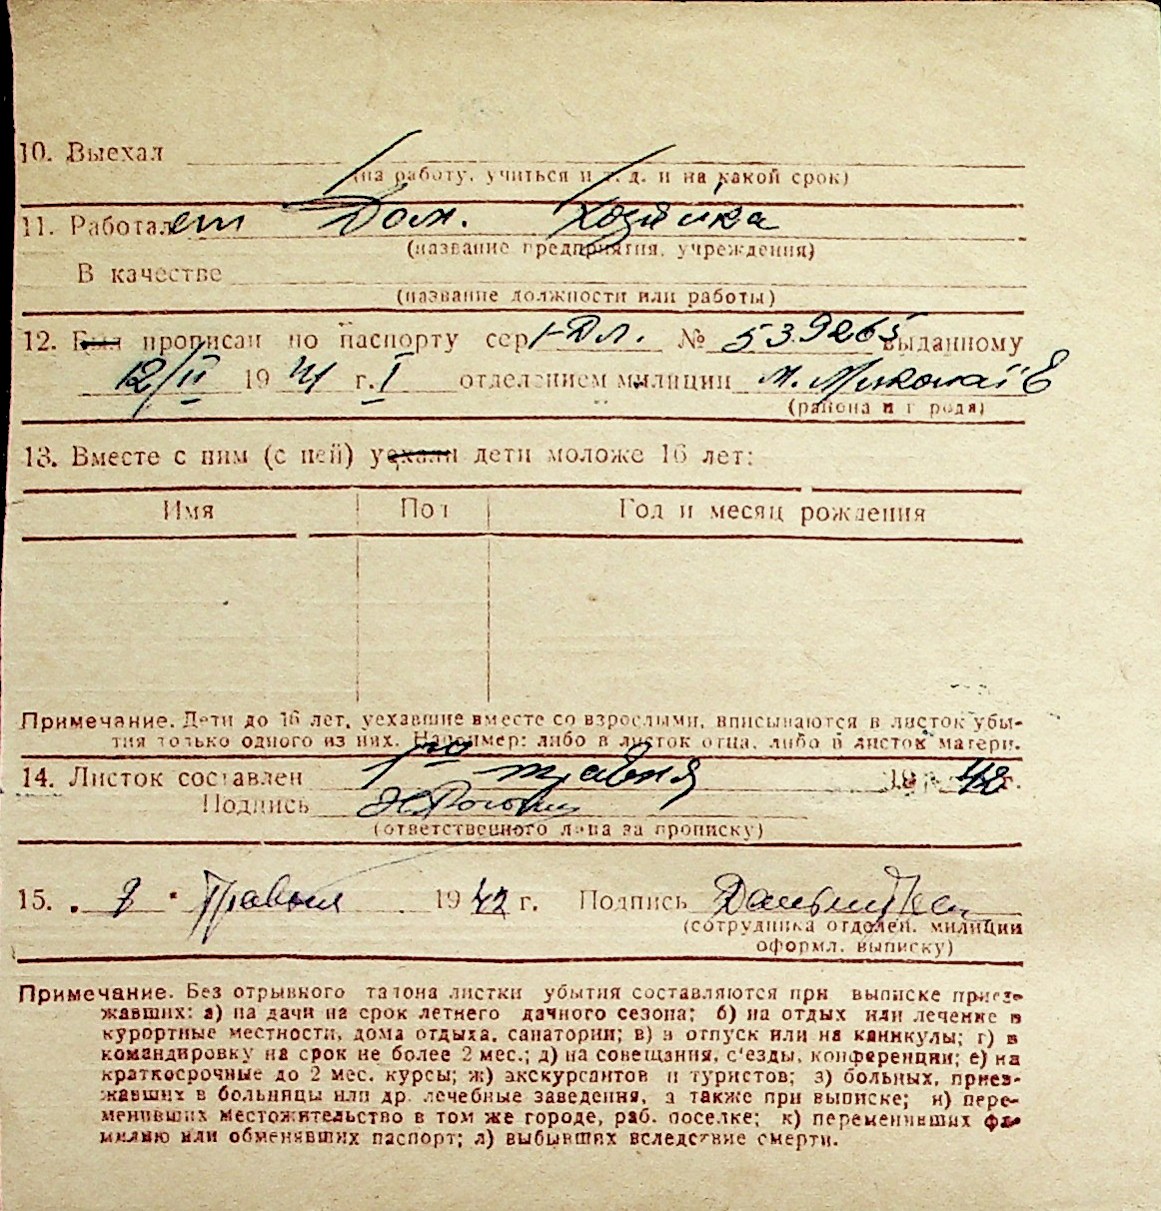 10. Выехал
(на работу, учиться и т. д. и на какой срок)
11. Работает Дом. Хозяйка
(название предприятия, учреждения)
В качестве
(название должности или работы)
12. Был прописан по паспорту сер. І-Дл. № 539265 выданному
12/II 1941 г. I отделением милиции м. Миколаїв
(района и города)
13. Вместе с ним (с ней) уехали дети моложе 16 лет:
Имя Пол Год и месяц рождения
Примечание. Дети до 16 лет, уехавшие вместе со взрослыми, вписываются в листок убы-
тия только одного из них. Например: либо в листок отца, либо в листок матери.
14. Листок составлен 1го травня 1942 г.
Подпись
(ответственного лица за прописку)
15. „8" Травня 1942 г. Подпись
(сотрудника отделен. милиции
оформл. выписку)
Примечание. Без отрывного талона листки убытия составляются при выписке приез-
жавших: а) на дачи на срок летнего дачного сезона; б) на отдых или лечение в
курортные местности, дома отдыха, санатории; в) в отпуск или на каникулы; г) в
командировку на срок не более 2 мес.; д) на совещания, с'езды, конференции; е) на
краткосрочные до 2 мес. курсы; ж) экскурсантов и туристов; з) больных, приез-
жавших в больницы или др. лечебные заведения, а также при выписке; и) пере-
менивших местожительство в том же городе, раб. поселке; к) переменивших фа-
милию или обменявших паспорт; л) выбывших вследствие смерти.